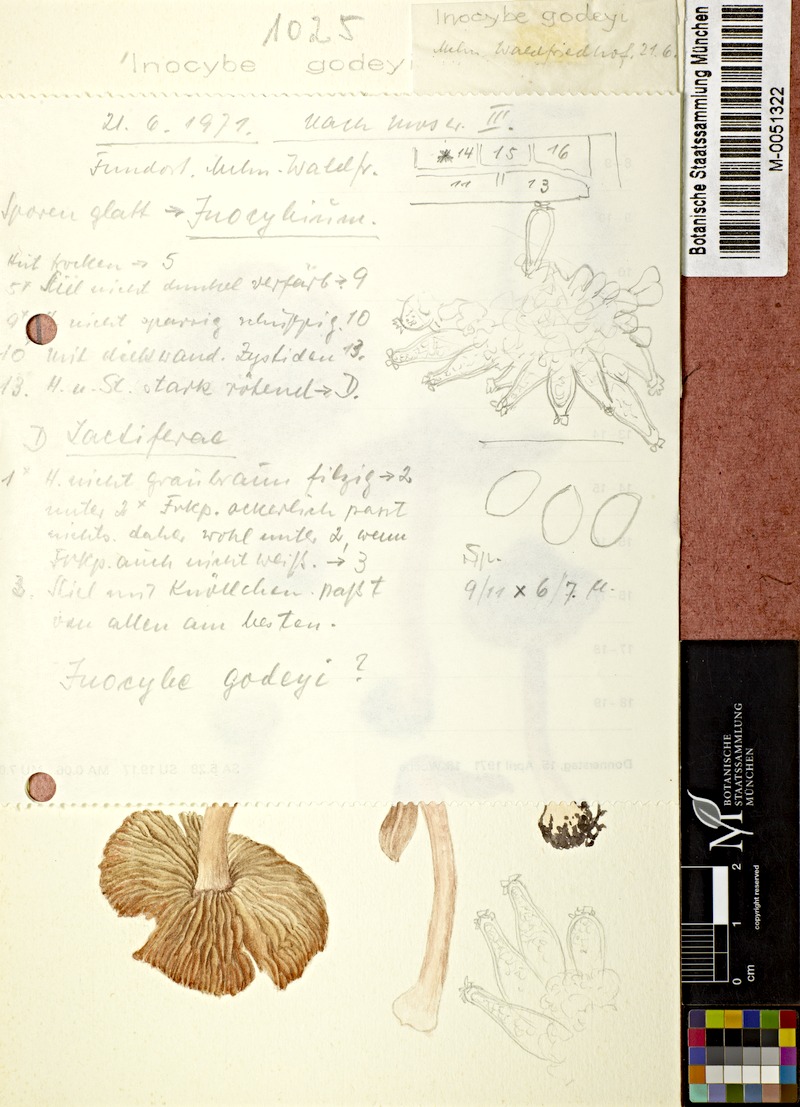 1025
'Inocybe godeyi
Inocybe godeyi
Mchn. Waldfriedhof. 21.6.
21. 6. 1971. Nach Moser III.
Fundort. Mchn. Waldfr.
14 15 16
11 13
Sporen glatt → Inocybium.
Hut trocken → 5
5x Stiel nicht dunkel verfärb. → 9
9x " nicht sparrig schuppig. 10
10 mit dickwand. Zystiden 13.
13. H. u. St. stark rötend → D.
D Lactiferae
1x H. nicht graubraun filzig → 2
unter 2x Frkp. ockerlich passt
nichts. daher wohl unter 2, wenn
Frkp. auch nicht weiß. → 3
3. Stiel mit Knöllchen. paßt
von allen am besten.
Sp.
9/11 x 6/7. µ.
Inocybe godeyi ?
14 - 15
17 - 18
18 - 19
Donnerstag, 15. April 1971
SU 19.17 MA 0.06
Botanische Staatssammlung München
M-0051322
BOTANISCHE
STAATSSAMMLUNG
MÜNCHEN
copyright reserved
0 1 2
cm